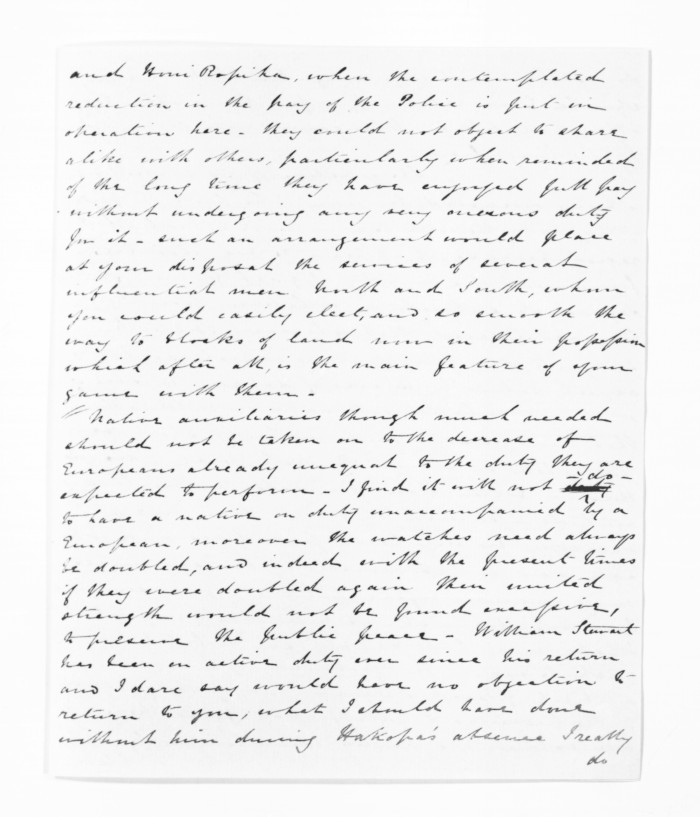 and Honi Ropiha, when the contemplated
reduction in the pay of the Police is put in
operation here - they could not object to share
alike with others, particularly when reminded
of the long time they have enjoyed full pay
without undergoing any very onerous duty
for it - such an arrangement would place
at your disposal the services of several
influential men North and South, whom
you could easily elect, and so smooth the
way to blocks of land now in their possession
which after all, is the main feature of your
game with them -
" Native auxiliaries though much needed
should not be taken on to the decrease of
Europeans already unequal to the duty they are
expected to perform - I find it will not - do -
to have a native on duty unaccompanied by a
European, moreover the watches need always
be doubled, and indeed with the present times
if they were doubled again their united
strength would not be found excessive,
to preserve the public peace - William Stewart
has been on active duty ever since his return
and I dare say would have no objection to
return to you, what I should have done
without him during Hakopa's absence I really
do